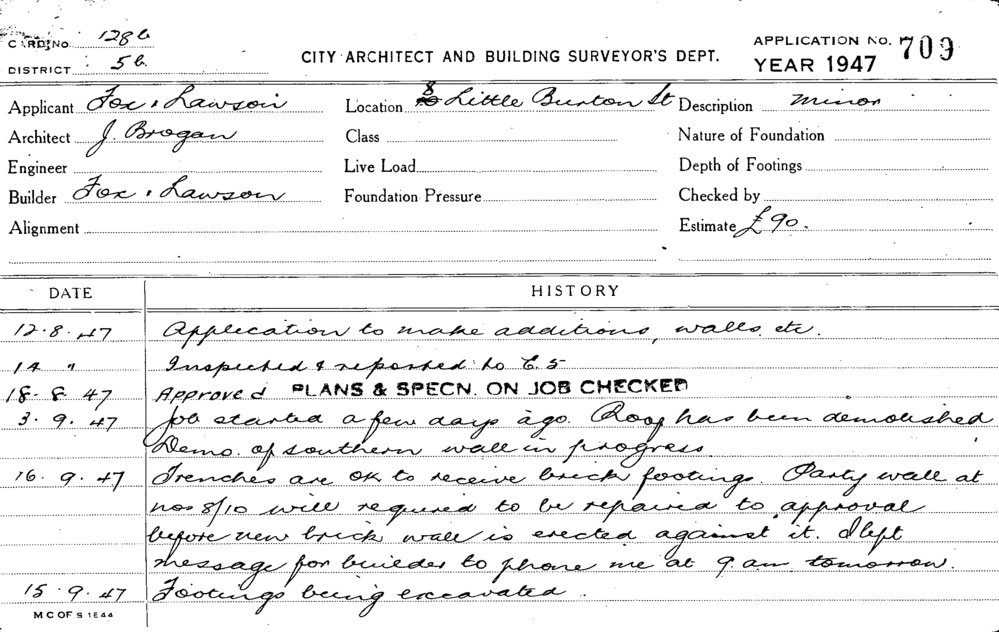 CARD No 128b
DISTRICT 5b.
CITY ARCHITECT AND BUILDING SURVEYOR'S DEPT.
APPLICATION No. 709
YEAR 1947
Applicant Fox & Lawson Location 8 Little Burton St Description minor
Architect J. Brogan Class Nature of Foundation
Engineer Live Load Depth of Footings
Builder Fox & Lawson Foundation Pressure Checked by
Alignment Estimate £90.
DATE HISTORY
12.8.47 Application to make additions, walls, etc.
14 " Inspected & reported to C.S
18.8.47 Approved PLANS & SPECN. ON JOB CHECKED
3.9.47 Job started a few days ago. Roof has been demolished
Demo. of southern wall in progress.
16.9.47 Trenches are OK to receive brick footings. Party wall at
nos 8/10 will required to be repaired to approval
before new brick wall is erected against it. I left
message for builder to phone me at 9 am tomorrow.
15.9.47 Footings being excavated.
M C OF S 1844